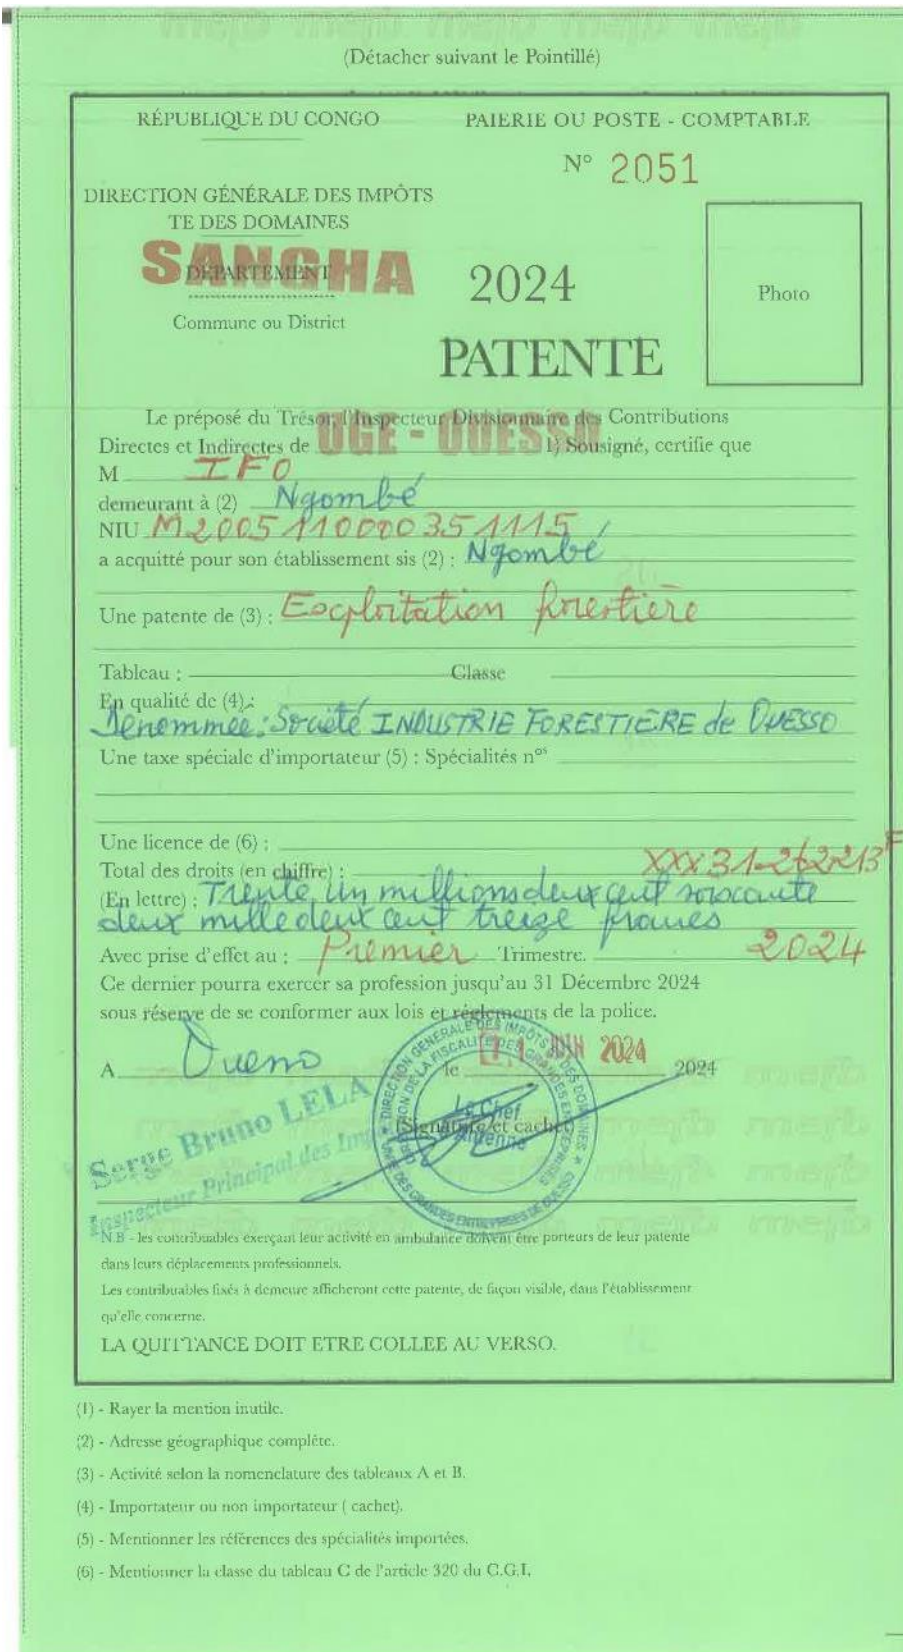 (Détacher suivant le Pointillé)
RÉPUBLIQUE DU CONGO
PAIERIE OU POSTE - COMPTABLE
N° 2051
DIRECTION GÉNÉRALE DES IMPÔTS
TE DES DOMAINES
SANGHA
DÉPARTEMENT
Commune ou District
2024
PATENTE
Photo
Le préposé du Trésor, l'Inspecteur Divisionnaire des Contributions
Directes et Indirectes de UGE - OUESSO 1) Sousigné, certifie que
M IFO
demeurant à (2) Ngombé
NIU M2005110000351115
a acquitté pour son établissement sis (2) : Ngombé
Une patente de (3) : Exploitation forestière
Tableau : Classe
En qualité de (4) :
Denommée : Société INDUSTRIE FORESTIERE de OUESSO
Une taxe spéciale d'importateur (5) : Spécialités nos
Une licence de (6) :
Total des droits (en chiffre) : XXX 31-262213 F
(En lettre) : Trente un millions deux cent soixante
deux mille deux cent treize francs
Avec prise d'effet au : Premier Trimestre. 2024
Ce dernier pourra exercer sa profession jusqu'au 31 Décembre 2024
sous réserve de se conformer aux lois et réglements de la police.
A Ouesso le JUN 2024 2024
(Signature et cachet)
Le Chef
d'Antenne
Serge Bruno LELA
Inspecteur Principal des
N.B - les contribuables exerçant leur activité en ambulance doivent être porteurs de leur patente
dans leurs déplacements professionnels.
Les contribuables fixés à demeure afficheront cette patente, de façon visible, dans l'établissement
qu'elle concerne.
LA QUITTANCE DOIT ETRE COLLEE AU VERSO.
(1) - Rayer la mention inutile.
(2) - Adresse géographique complète.
(3) - Activité selon la nomenclature des tableaux A et B.
(4) - Importateur ou non importateur ( cachet).
(5) - Mentionner les références des spécialités importées.
(6) - Mentionner la classe du tableau C de l'article 320 du C.G.I.